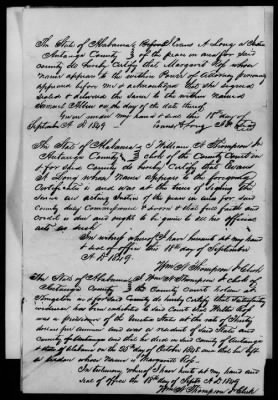 The State of Alabama } Before Evans A Long a Justice
Autauga County } of the peace in and for said
county do hereby Certify that Margaret Rop whose
name appears to the within Power of Attorney personally
appeared before me & acknowledged that she signed
sealed & delivered the same to the within named
Samuel on the day of the date thereof
Given under my hand & seal this 18th day of
September A D. 1849 Evans A Long J.P. Seal
The State of Alabama } I William H Thompson Jr
Autauga County } clerk of the County Court in &
for said County do hereby Certify that Evans
A Long whose name appears to the foregoing
Certificate is and was at the time of signing the
same an acting Justice of the peace in and for said
County duly Commissioned & sworn & that full faith and
credit is due and ought to be given to all his official
acts as such
In witness whereof I have hereunto set my hand
& seal of office this 18th day of September
A D. 1849.
Wm H Thompson Jr Clerk
The State of Alabama } I Wm H Thompson Jr clerk of
Autauga County } the County Court holden at
Kingston in & for said County do hereby Certify that Satisfactory
evidence has been exhibited to said Court that Rop
was a pensioner of the United States at the rate of Ninety
dollars per annum and was a resident of said State and
County of Autauga and that he died in said County of Autauga
State of Alabama on the day of October 1848 and that he left
a widow whose name is Margaret Rop.
In testimony whereof I have hereto set my hand and
seal of office the 18th day of Sept A.D. 1849
Wm H Thompson Jr Clerk